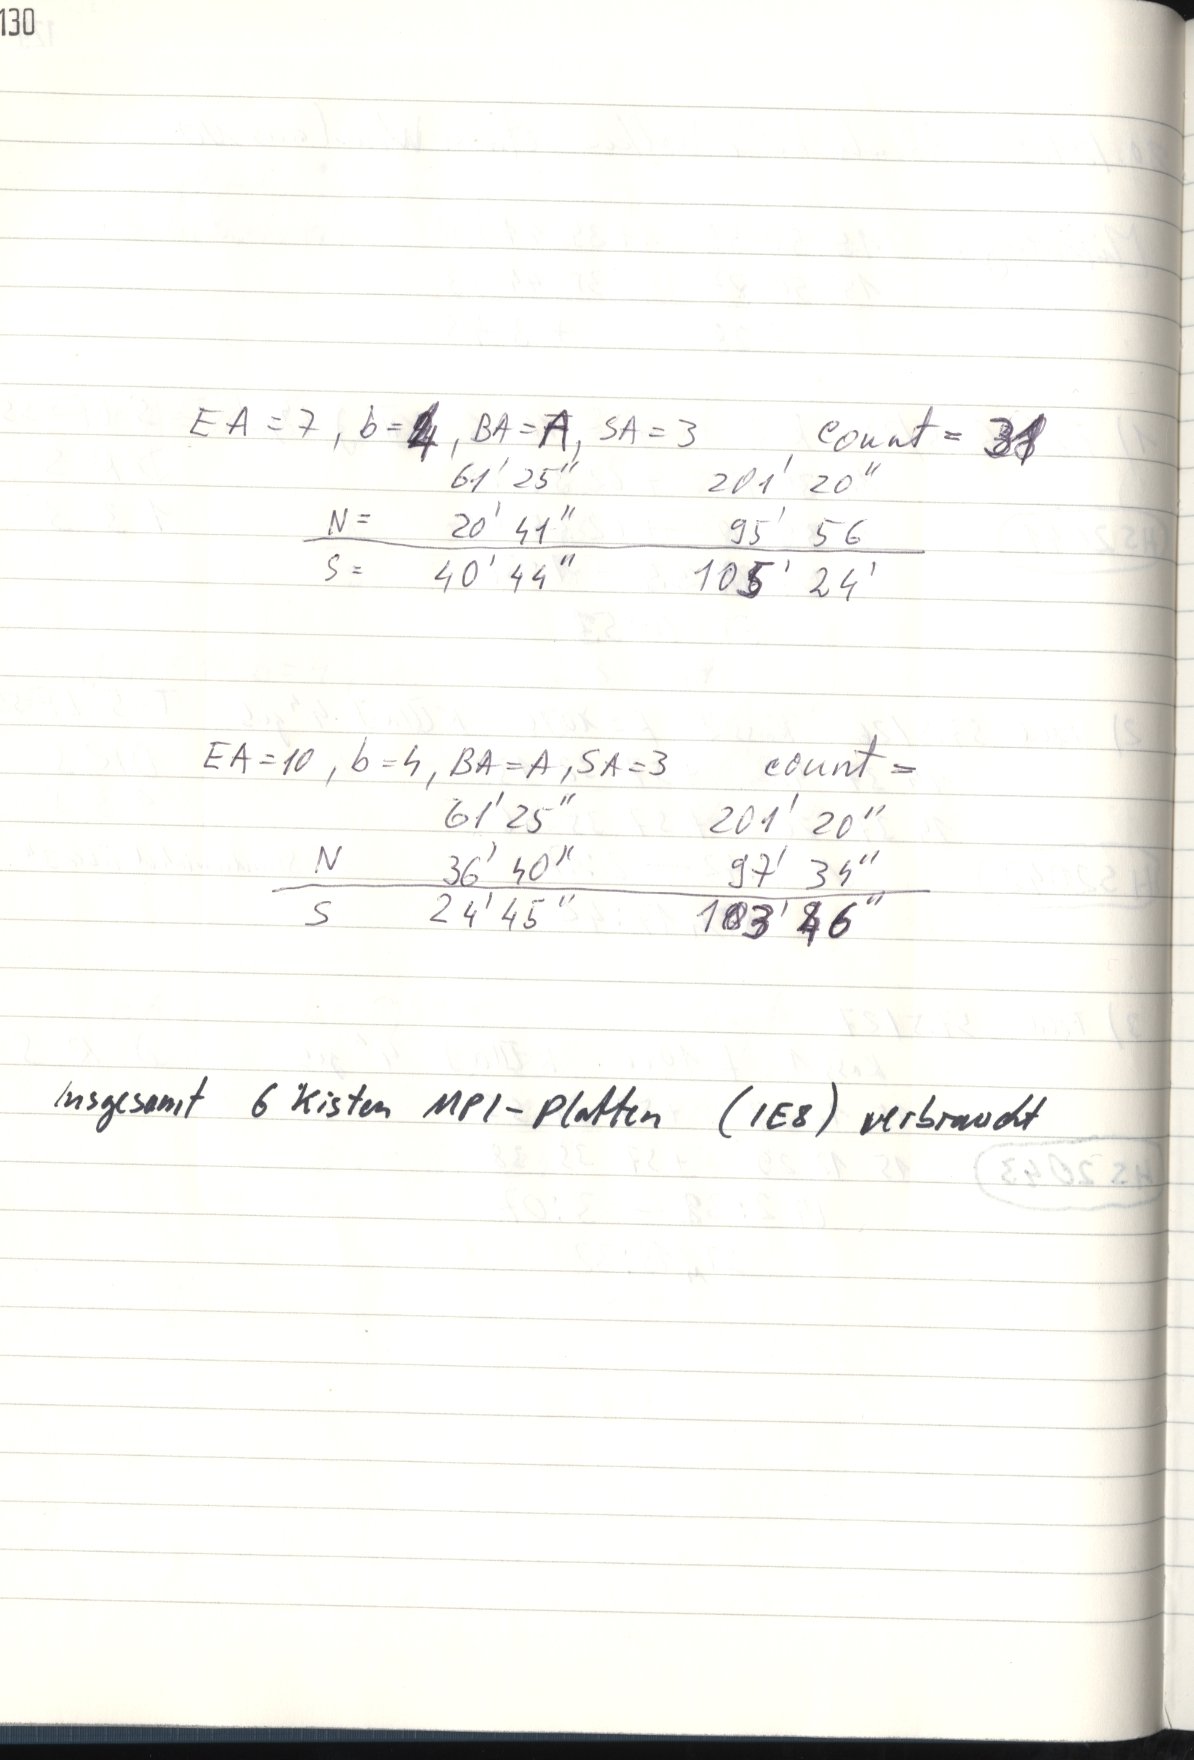 130
EA = 7, b = 4, BA = A, SA = 3 count = 31
61' 25" 201' 20"
N = 20' 41" 95' 56
S = 40' 44" 105' 24'
EA = 10, b = 4, BA = A, SA = 3 count =
61' 25" 201' 20"
N 36' 40" 97' 34"
S 24' 45" 103' 46"
Insgesamt 6 Kisten MPI-Platten (IE8) verbraucht